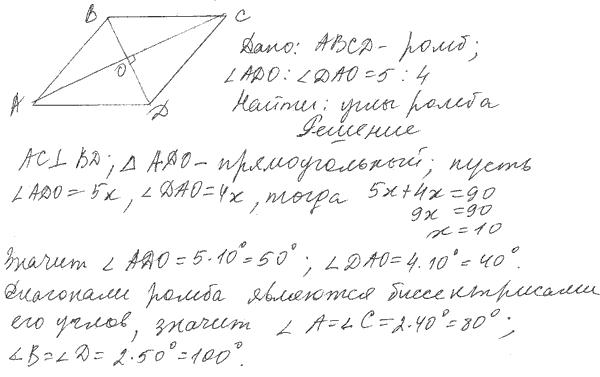 B C
O
A D
Дано: ABCD - ромб;
∠ADO : ∠DAO = 5 : 4
Найти: углы ромба
Решение
AC⊥BD; △ ADO - прямоугольный; пусть
∠ADO = 5x, ∠DAO = 4x, тогда 5x + 4x = 90
9x = 90
x = 10
Значит ∠ ADO = 5·10° = 50°; ∠DAO = 4·10° = 40°.
Диагонали ромба являются биссектрисами
его углов, значит ∠ A = ∠ C = 2·40° = 80°;
∠B = ∠D = 2·50° = 100°.